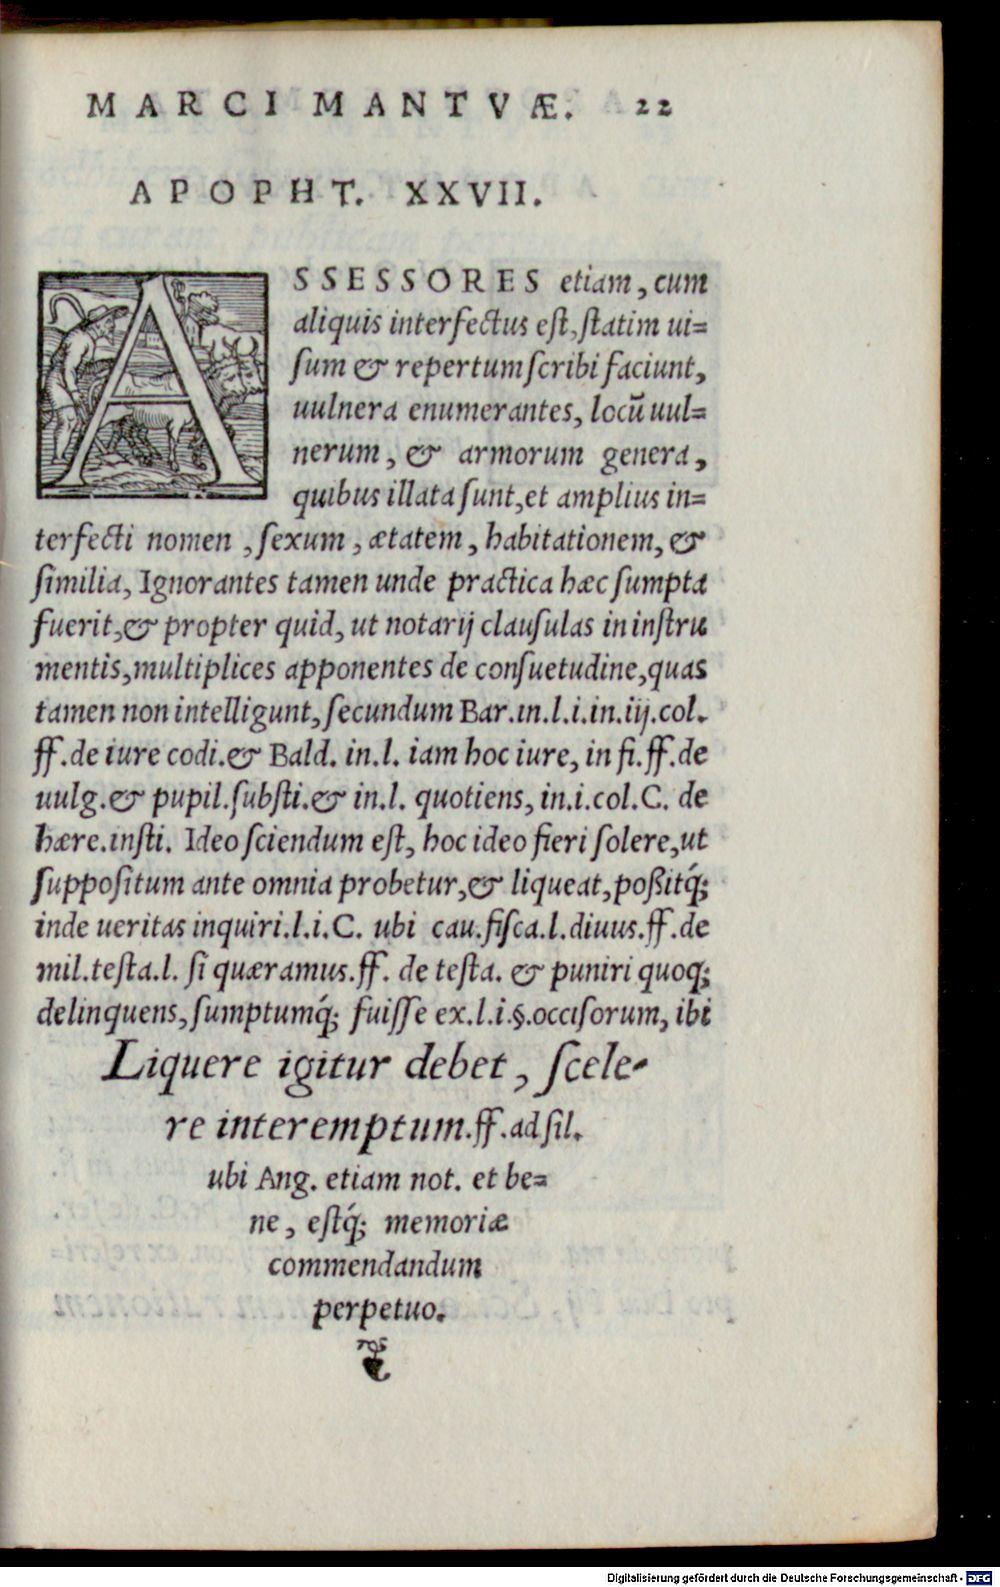 MARCI MANTVÆ. 22
APOPHT. XXVII.
ASSESSORES etiam, cum
aliquis interfectus est, statim ui=
sum & repertum scribi faciunt,
uulnera enumerantes, locũ uul=
nerum, & armorum genera,
quibus illata sunt, et amplius in=
terfecti nomen, sexum, ætatem, habitationem, &
similia, Ignorantes tamen unde practica hæc sumpta
fuerit, & propter quid, ut notarij clausulas in instru
mentis, multiplices apponentes de consuetudine, quas
tamen non intelligunt, secundum Bar.in.l.i.in.iij.col.
ff.de iure codi.& Bald. in.l. iam hoc iure, in fi.ff.de
uulg.& pupil.substi.& in.l. quotiens, in.i.col.C. de
hære.insti. Ideo sciendum est, hoc ideo fieri solere, ut
suppositum ante omnia probetur, & liqueat, poßitq́;
inde ueritas inquiri.l.i.C. ubi cau.fisca.l.diuus.ff.de
mil.testa.l. si quæramus.ff. de testa. & puniri quoq;
delinquens, sumptumq́; fuisse ex.l.i.§.occisorum, ibi
Liquere igitur debet, scele-
re interemptum.ff.ad sil.
ubi Ang. etiam not. et be=
ne, estq́; memoriæ
commendandum
perpetuo.
Digitalisierung gefördert durch die Deutsche Forschungsgemeinschaft - DFG